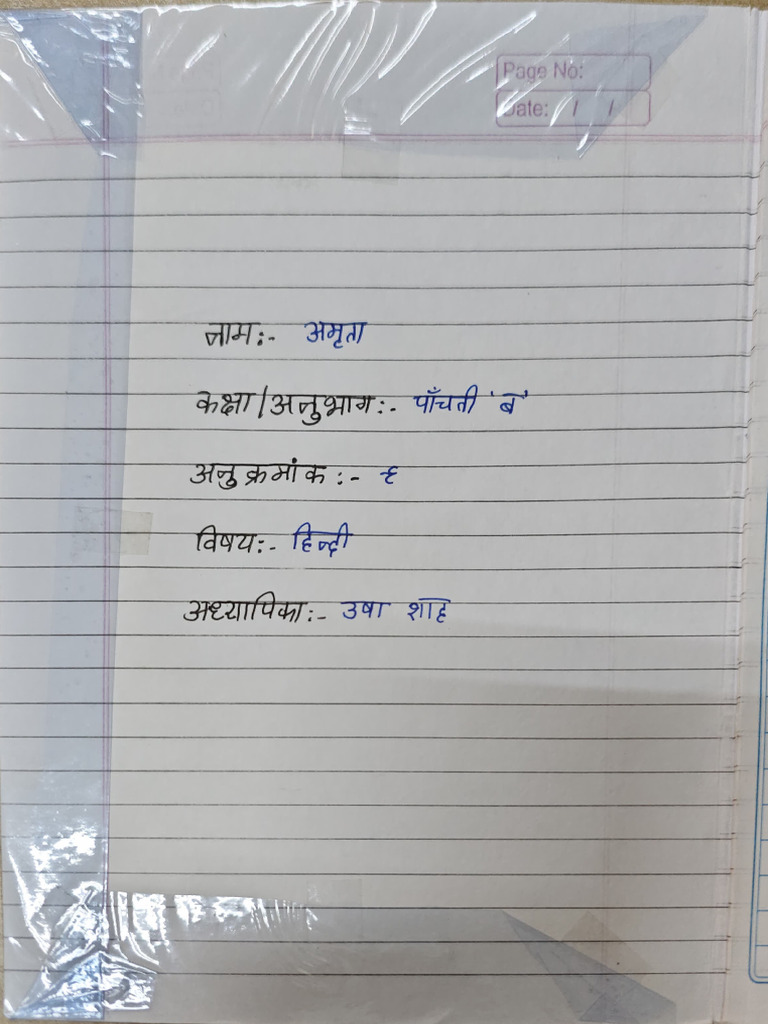 Page No:
Date: / /
नाम:- अमृता
कक्षा/अनुभाग:- पाँचवी 'ब'
अनुक्रमांक:- ६
विषय:- हिन्दी
अध्यापिका:- उषा शाह